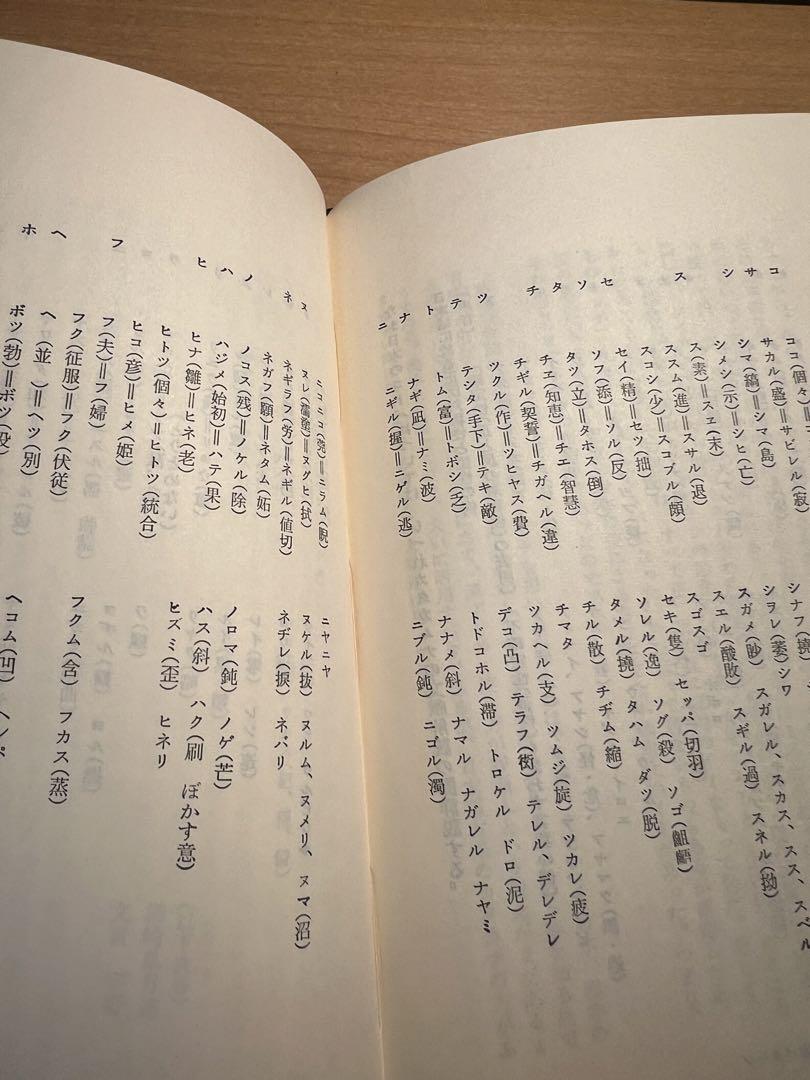 コ ココ(個々)=コ
サ サカル(盛)=サビレル(寂) シナフ(撓)
シ シマ(縞)=シマ(島) シヲレ(萎)シワ
シメシ(示)=シヒ(亡) スガメ(眇) スガレル、スカス、スス、スベル
ス ス(素)=スヱ(末) スエル(酸敗) スギル(過) スネル(拗)
ススム(進)=スサル(退) スゴスゴ
スコシ(少)=スコブル(頗)
セ セイ(精)=セツ(拙) セキ(隻) セッパ(切羽)
ソ ソフ(添)=ソル(反) ソレル(逸) ソグ(殺) ソゴ(齟齬)
タ タツ(立)=タホス(倒) タメル(撓) タハム ダツ(脱)
チ チヱ(知恵)=チエ(智慧) チル(散) チヂム(縮)
チギル(契誓)=チガヘル(違) チマタ
ツ ツクル(作)=ツヒヤス(費) ツカヘル(支) ツムジ(旋) ツカレ(疲)
テ テシタ(手下)=テキ(敵) デコ(凸) テラフ(衒) テレル、デレデレ
ト トム(富)=トボシ(乏) トドコホル(滞) トロケル ドロ(泥)
ナ ナギ(凪)=ナミ(波) ナナメ(斜) ナマル ナガレル ナヤミ
ニ ニギル(握)=ニゲル(逃) ニブル(鈍) ニゴル(濁)
ニコニコ(莞)=ニラム(睨) ニヤニヤ
ヌ ヌレ(濡塗)=ヌグヒ(拭) ヌケル(抜) ヌルム、ヌメリ、ヌマ(沼)
ネ ネギラフ(労)=ネギル(値切) ネヂレ(捩) ネバリ
ネガフ(願)=ネタム(妬)
ノ ノコス(残)=ノケル(除) ノロマ(鈍) ノゲ(芒)
ハ ハジメ(始初)=ハテ(果) ハス(斜) ハク(刷 ぼかす意)
ヒ ヒナ(雛)=ヒネ(老) ヒズミ(歪) ヒネリ
ヒトツ(個々)=ヒトツ(統合)
ヒコ(彦)=ヒメ(姫)
フ フ(夫)=フ(婦)
フク(征服)=フク(伏従) フクム(含) フカス(蒸)
ヘ ヘ(並)=ヘツ(別) ヘコム(凹)
ホ ボツ(勃)=ボツ(没)